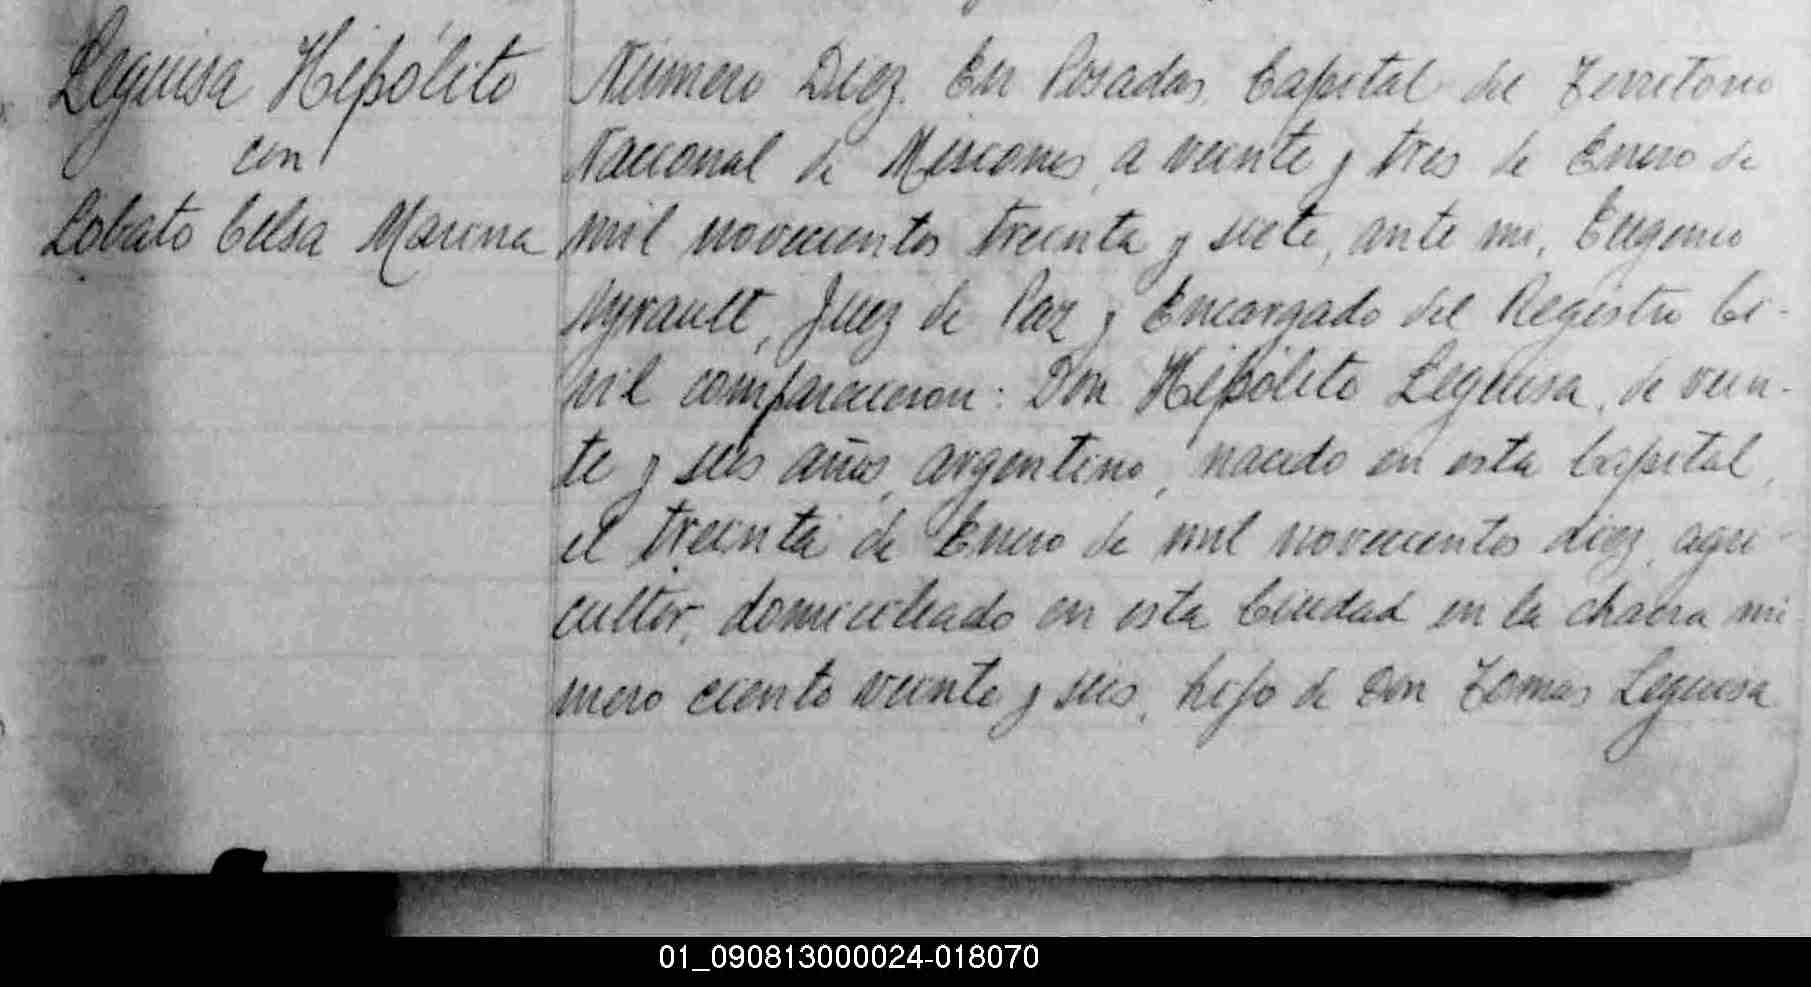 Leguisa Hipólito
con
Lobato Celsa Marina
Número Diez. En Posadas, Capital del Territorio
Nacional de Misiones, a veinte y tres de Enero de
mil novecientos treinta y siete, ante mi, Eugenio
Ayrault, Juez de Paz y Encargado del Registro Ci-
vil comparecieron: Don Hipólito Leguisa, de vein-
te y seis años, argentino, nacido en esta Capital,
el treinta de Enero de mil novecientos diez, agri-
cultor, domiciliado en esta Ciudad en la chacra nú-
mero ciento veinte y seis, hijo de Don Tomas Leguisa
01_090813000024-018070